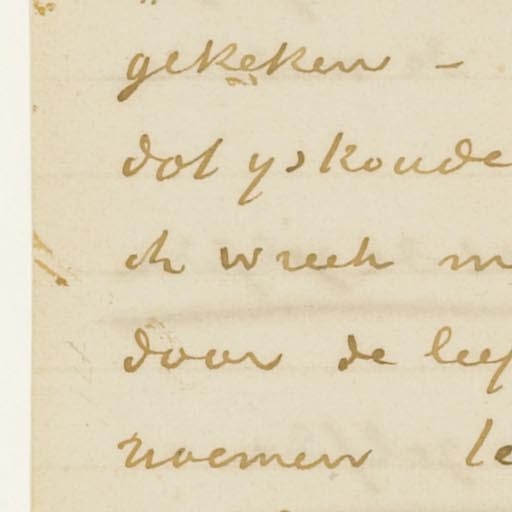 gekeken –
dat yskoude
ik wreek
door de
noemen